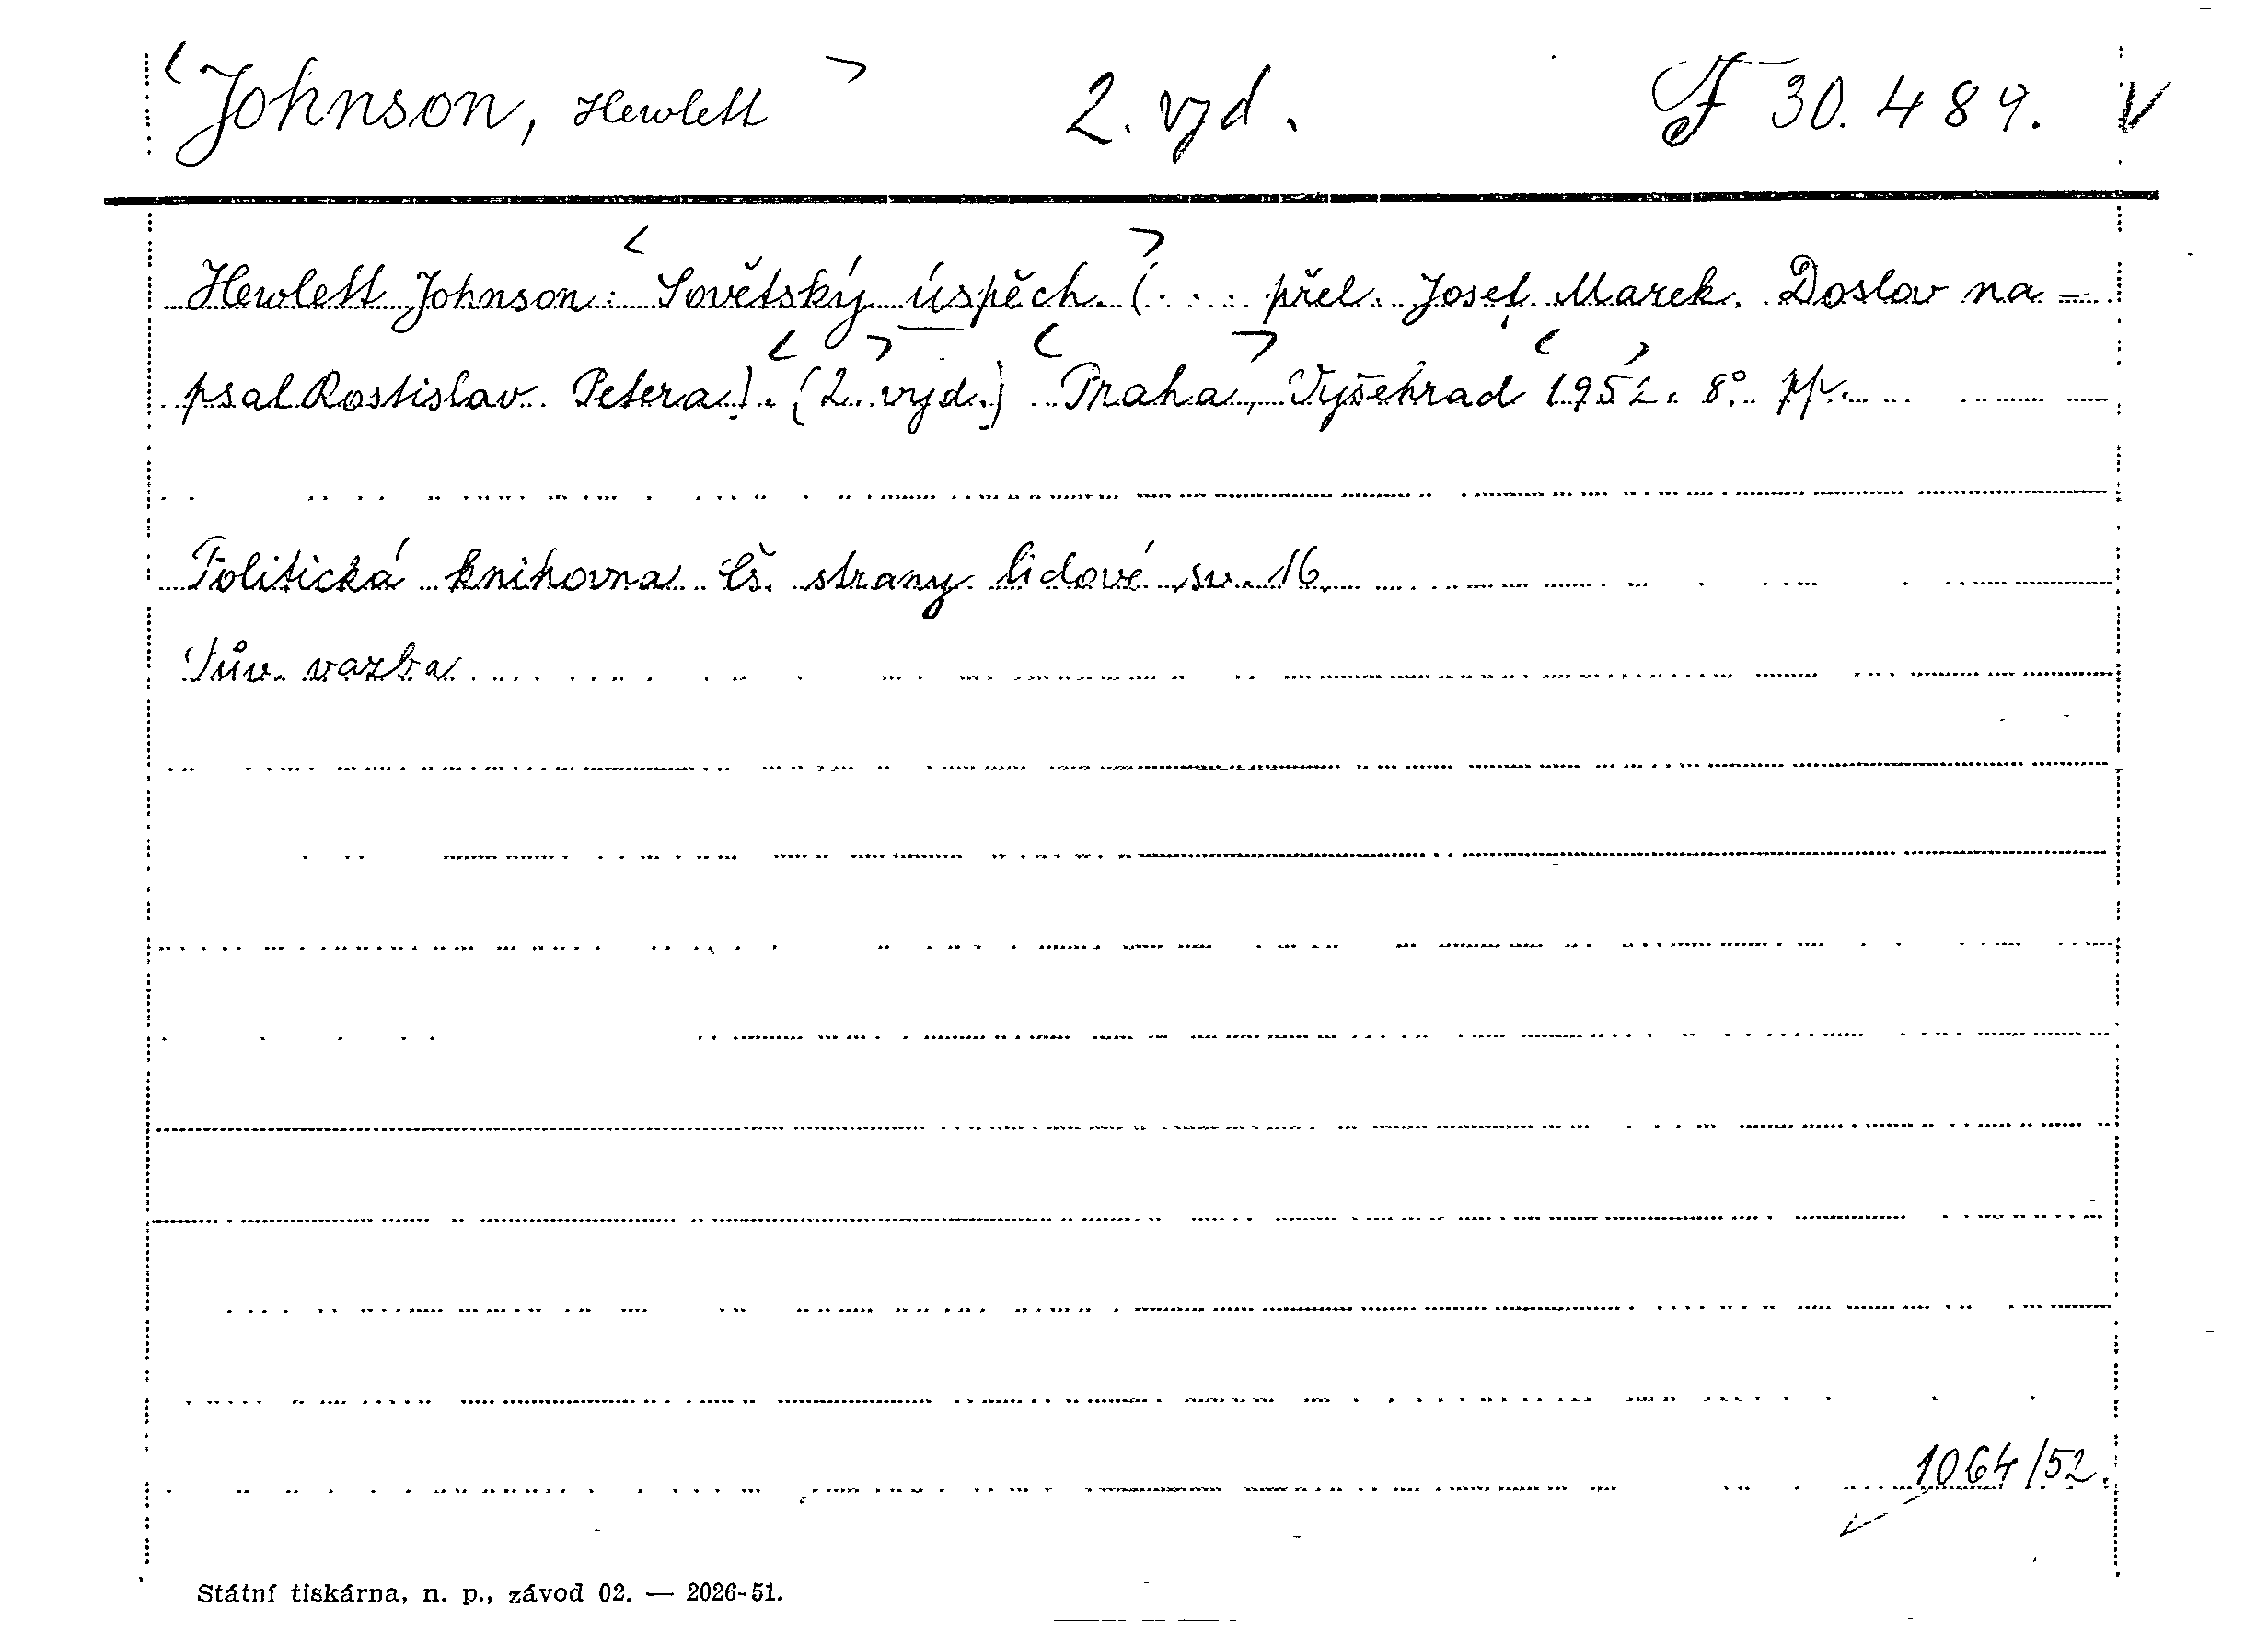 <Johnson, Hewlett> 2. vyd. F 30.489. V
Hewlett Johnson: <Sovětský úspěch.> (... přel. Josef Marek. Doslov na-
psal Rostislav Petera). <(2. vyd.)> <Praha, Vyšehrad <1952. 8°. pp.
Politická knihovna čs. strany lidové, sv. 16.
Pův. vazba
1064/52.
Státní tiskárna, n. p., závod 02. — 2026-51.